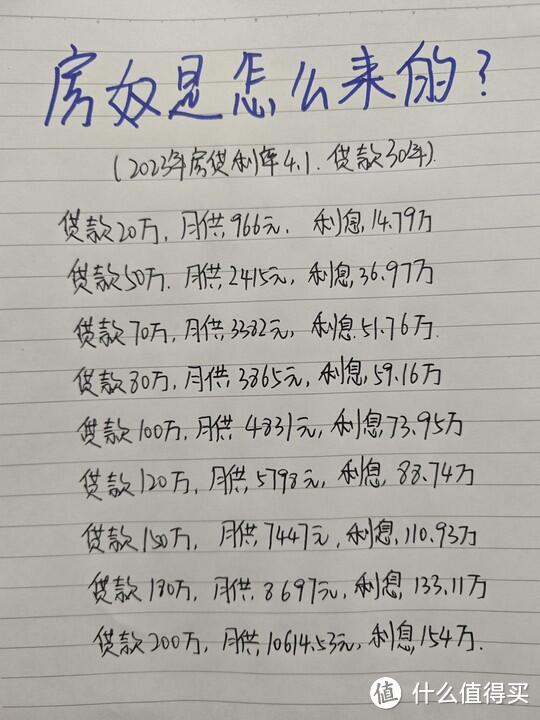 房奴是怎么来的?
(2023年房贷利率4.1.贷款30年).
贷款20万,月供,966元. 利息,14.79万
贷款50万.月供,2415元,利息,36.97万
贷款70万,月供,3382元,利息,51.76万.
贷款80万,月供,3865元,利息,59.16万
贷款100万,月供,4831元,利息,73.95万
贷款120万,月供,5798元,利息,88.74万
贷款150万,月供,7447元,利息,110.93万
贷款180万,月供,8697元,利息,133.11万
贷款200万,月供,10614.53元,利息,154万.
值 什么值得买